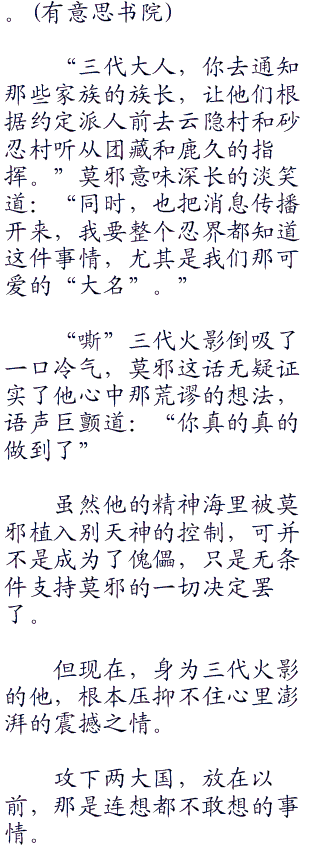 。(有意思书院)
“三代大人，你去通知
那些家族的族长，让他们根
据约定派人前去云隐村和砂
忍村听从团藏和鹿久的指
挥。”莫邪意味深长的淡笑
道：“同时，也把消息传播
开来，我要整个忍界都知道
这件事情，尤其是我们那可
爱的“大名”。”
“嘶”三代火影倒吸了
一口冷气，莫邪这话无疑证
实了他心中那荒谬的想法，
语声巨颤道：“你真的真的
做到了”
虽然他的精神海里被莫
邪植入别天神的控制，可并
不是成为了傀儡，只是无条
件支持莫邪的一切决定罢
了。
但现在，身为三代火影
的他，根本压抑不住心里澎
湃的震撼之情。
攻下两大国，放在以
前，那是连想都不敢想的事
情。